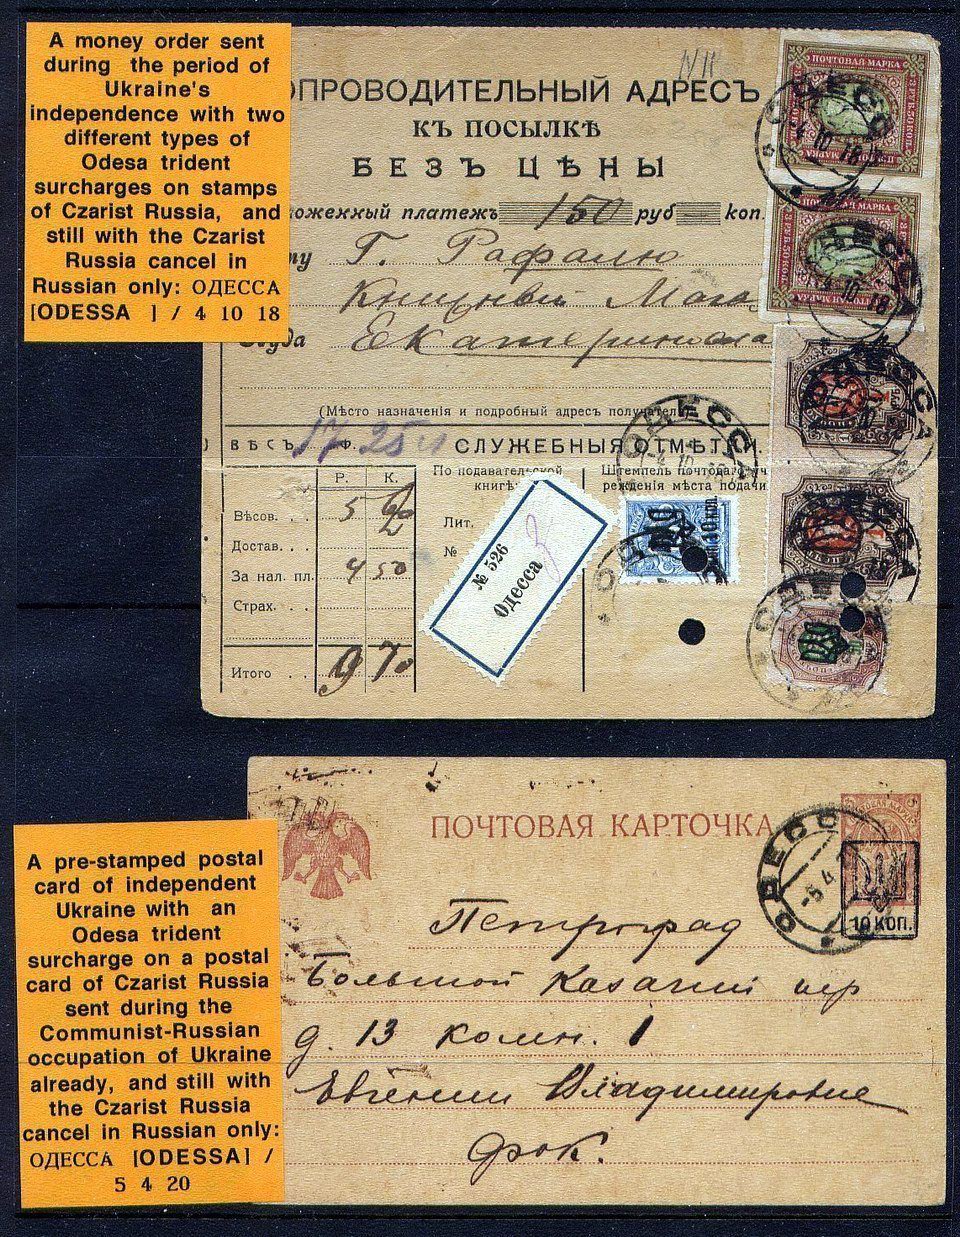 A money order sent
during the period of
Ukraine's
independence with two
different types of
Odesa trident
surcharges on stamps
of Czarist Russia, and
still with the Czarist
Russia cancel in
Russian only: ОДЕССА
[ODESSA ] / 4 10 18
ОПРОВОДИТЕЛЬНЫЙ АДРЕСЪ
КЪ ПОСЫЛКѢ
БЕЗЪ ЦѢНЫ
ложенный платежъ 150 руб коп.
му Г. Рафалю
Книжный Мага
Куда Екатеринослав
(Мѣсто назначенія и подробный адресъ получателя)
ВѢСЪ 17 Ф. 25 СЛУЖЕБНЫЯ ОТМѢТКИ.
По подавательской
книгѣ
Штемпель почтоваго уч
режденія мѣста подачи
Р. К.
Вѣсов. . . 5
Достав. . .
За нал. пл. 4 50
Страх. . .
Итого 9 70
Лит.
№
№ 526
Одесса
ПОЧТОВАЯ МАРКА
ОДЕССА
4 10 18
ПОЧТОВАЯ МАРКА
ОДЕССА
4 10 18
ОДЕССА
ОДЕССА
ОДЕССА
ОДЕССА
10 коп.
A pre-stamped postal
card of independent
Ukraine with an
Odesa trident
surcharge on a postal
card of Czarist Russia
sent during the
Communist-Russian
occupation of Ukraine
already, and still with
the Czarist Russia
cancel in Russian only:
ОДЕССА [ODESSA] /
5 4 20
ПОЧТОВАЯ КАРТОЧКА
ОДЕССА
-5 4
10 КОП.
Петроград
Большой Казачий пер
д. 13 комн. 1
Евгении Владимировне
Фок.